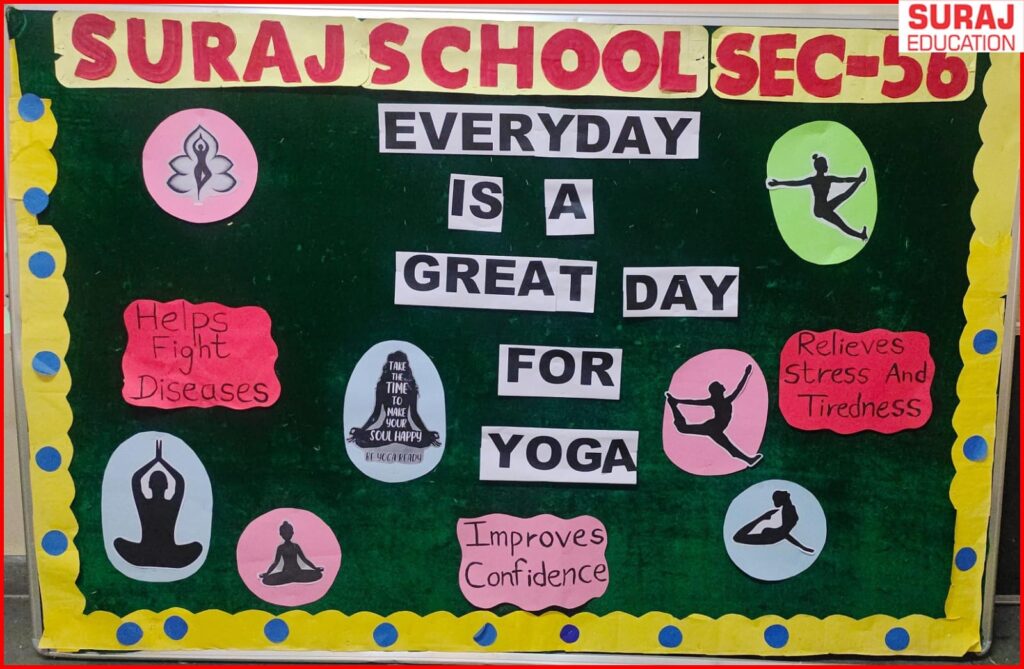 SURAJ SCHOOL SEC-56
SURAJ
EDUCATION
EVERYDAY
IS A
GREAT DAY
FOR
YOGA
Helps
Fight
Diseases
TAKE
THE
TIME
TO
MAKE
YOUR
SOUL HAPPY
BE YOGA READY
Relieves
Stress And
Tiredness
Improves
Confidence